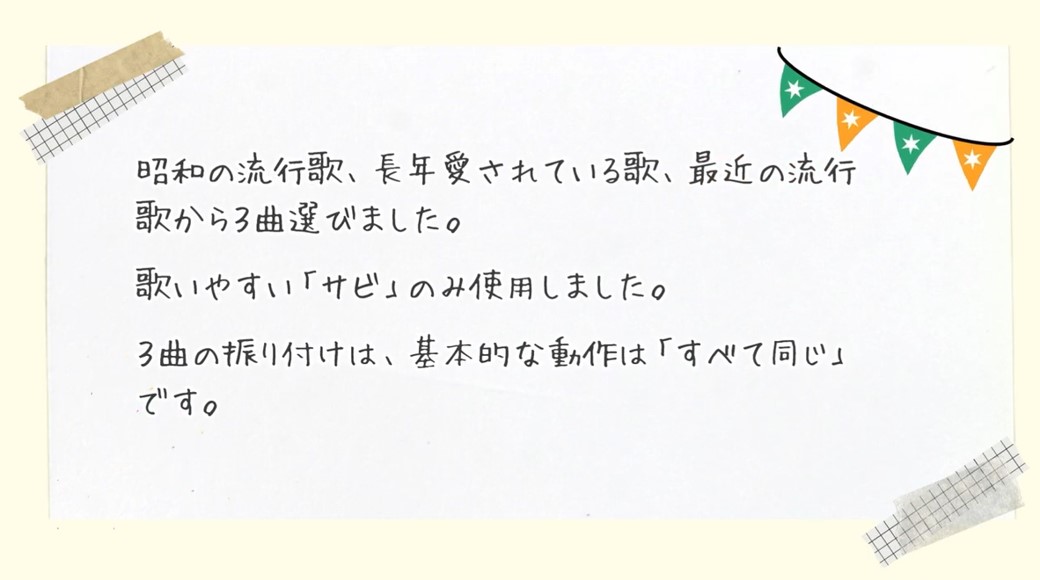 昭和の流行歌、長年愛されている歌、最近の流行
歌から3曲選びました。
歌いやすい「サビ」のみ使用しました。
3曲の振り付けは、基本的な動作は「すべて同じ」
です。